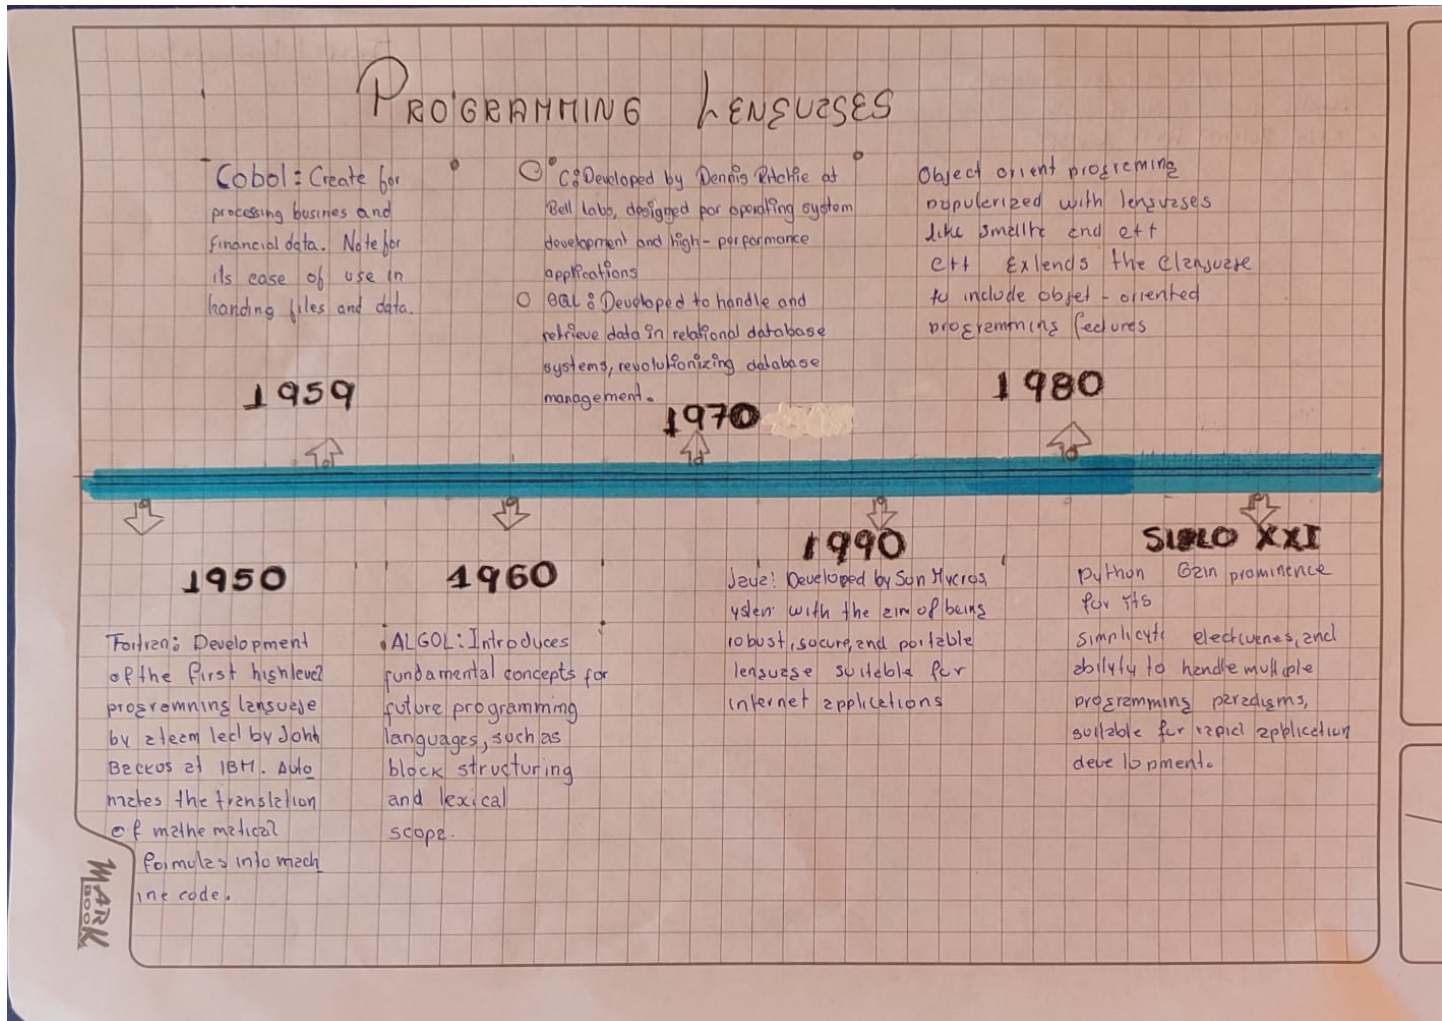 PROGRAMMING LENGUAGES
Cobol: Create for
processing busines and
financial data. Note for
its ease of use in
handing files and data.
1959
C: Developed by Dennis Ritchie at
Bell Labs, designed for operating system
development and high-performance
applications
SQL: Developed to handle and
retrieve data in relational database
systems, revolutionizing database
management.
1970
Object orient programing
popularized with lenguages
like and c++
c++ Extends the C language
to include objet-oriented
programming features
1980
1950
Fortran: Development
of the first high level
programning language
by a team led by John
Backos at IBM. Auto
mates the translation
of mathe matical
formulas into mach
ine code.
1960
ALGOL: Introduces
fundamental concepts for
future programming
languages, such as
block structuring
and lexical
scope.
1990
Java: Developed by Sun Mycros
ystem with the aim of being
robust, socure, and portable
lenguage suitable for
internet applications
SIGLO XXI
python Gain prominence
for its
simplicyty and
abilyty to handle multiple
programming paradigms,
suitable for rapid application
development.
MARK
BOOK